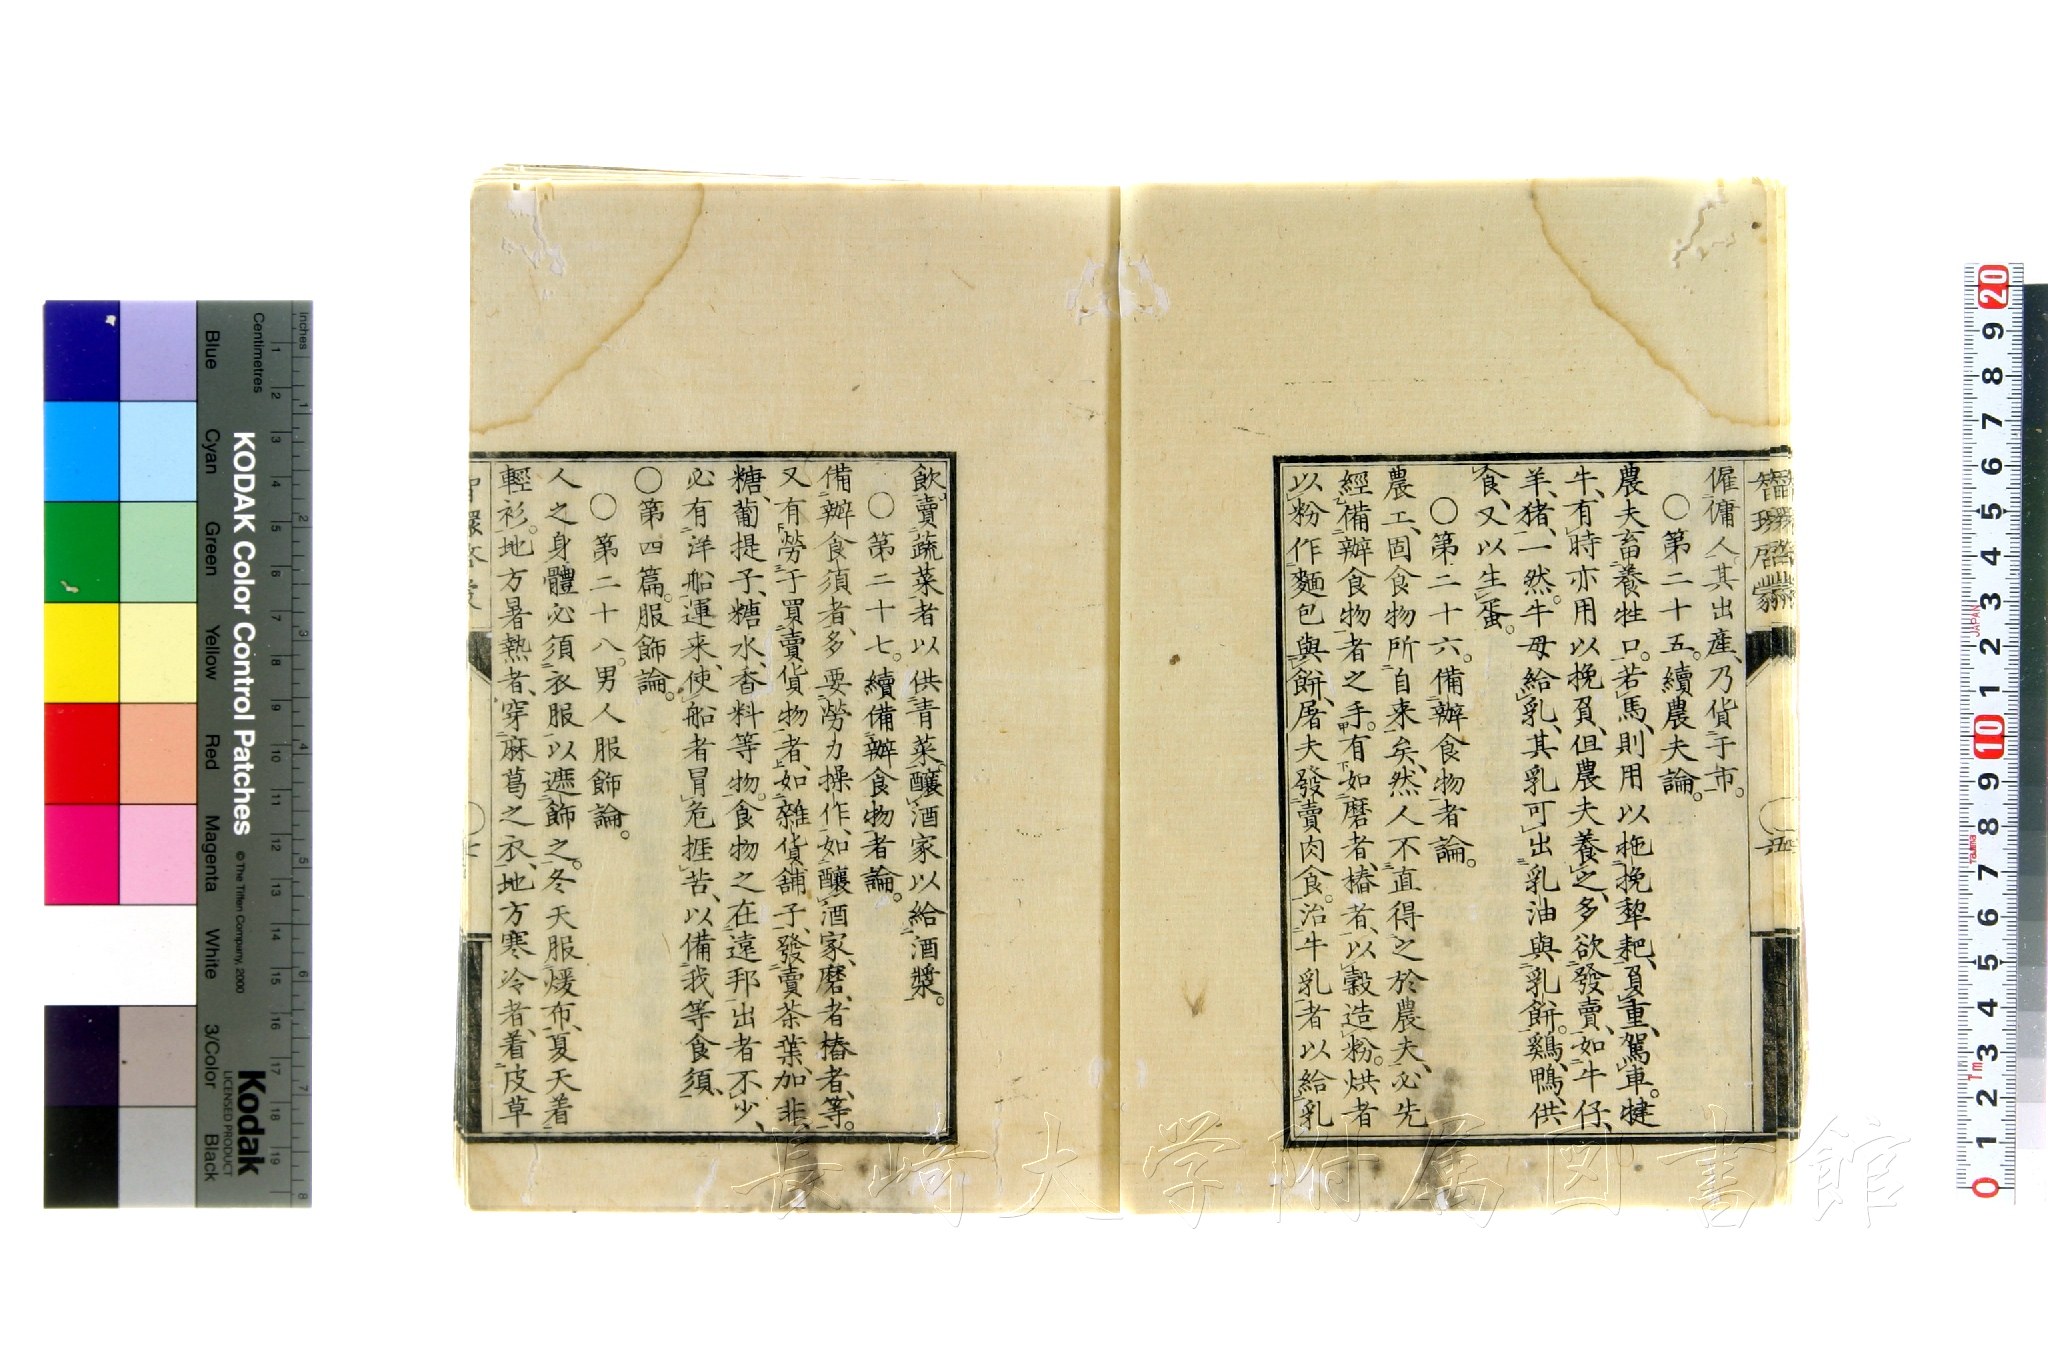 智環啓蒙
僱傭人、其出産、乃貨于市。
○第二十五。續農夫論。
農夫畜養牲口。若馬、則用以拖挽犂耙、負重、駕車。犍
牛、有時亦用以挽負、但農夫養之、多欲發賣、如牛仔、
羊、猪、一然。牛母給乳、其乳可出乳油與乳餅。鷄、鴨、供
食、又以生蛋。
○第二十六。備辦食物者論。
農工、固食物所自来矣、然人不直得之於農夫、必先
經備辦食物者之手。有如磨者、樁者、以穀造粉。烘者
以粉作麵包與餅、屠夫發賣肉食。治牛乳者以給乳
飲。賣蔬菜者以供青菜。釀酒家以給酒漿。
○第二十七。續備辦食物者論。
備辦食須者、多要勞力操作、如釀酒家、磨者樁者、等。
又有勞于買賣貨物者、如雜貨舖子、發賣茶葉、加非、
糖、葡提子、糖水、香料等物。食物之在遠邦出者不少、
必有洋船運来、使船者冒危捱苦、以備我等食須、
○第四篇。服飾論。
○第二十八。男人服飾論。
人之身體必須衣服以遮飾之。冬天服煖布、夏天着
輕衫。地方暑熱者、穿麻葛之衣、地方寒冷者、着皮草
KODAK Color Control Patches
© The Tiffen Company, 2000
Kodak
LICENSED PRODUCT
Inches
Centimetres
Blue Cyan Green Yellow Red Magenta White 3/Color Black
長崎大学附属図書館